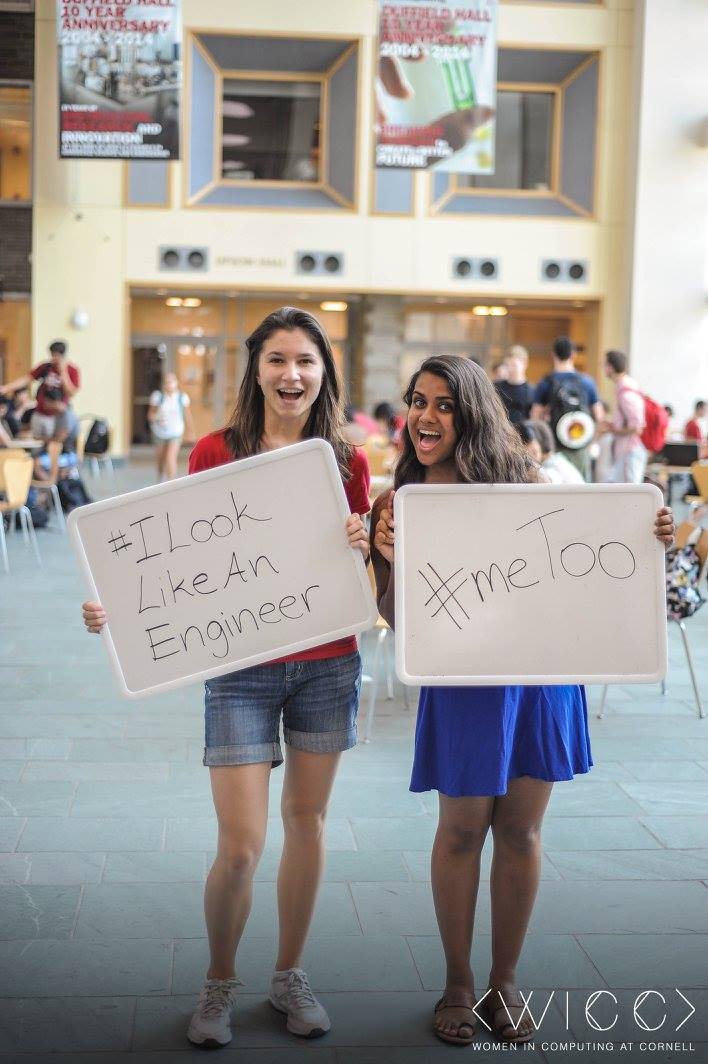 DUFFIELD HALL
10 YEAR
ANNIVERSARY
2004-2014
INNOVATION
DUFFIELD HALL
10 YEAR
ANNIVERSARY
2004-2014
FUTURE
#I Look
Like An
Engineer
#me Too
<WICC>
WOMEN IN COMPUTING AT CORNELL